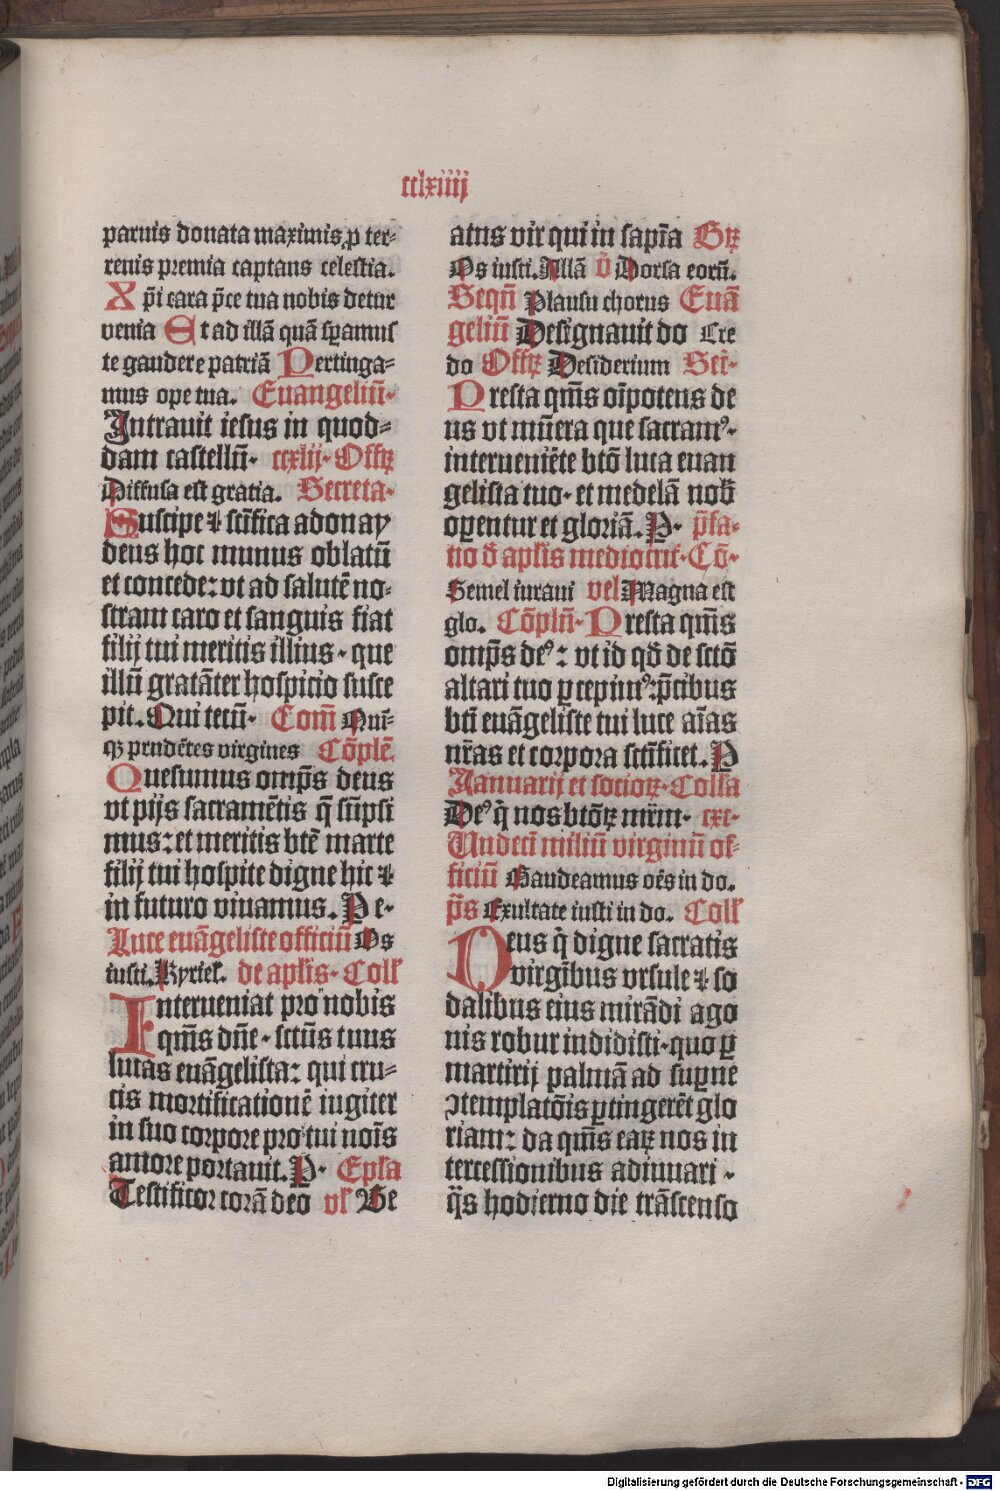 cclxiiij
paruis donata maximis, ꝓ ter-
renis premia captans celestia.
Xp̄i cara p̄ce tua nobis detur
venia Et ad illā quā sꝑamus
te gaudere patriā Pertinga-
mus ope tua. Euangeliū.
Intrauit iesus in quod-
dam castellū. ccxlij. Offꝝ
Diffusa est gratia. Secreta.
Suscipe ⁊ sc̄ifica adonay
deus hoc munus oblatū
et concede: vt ad salutē no-
stram caro et sanguis fiat
filij tui meritis illius. que
illū gratāter hospicio susce
pit. Qui tecū. Com̄ Qui-
qꝫ prudētes virgines Cōplē.
Quesumus omp̄s deus
vt pijs sacramētis q̄ sūpsi
mus: et meritis btē marte
filij tui hospite digne hic ⁊
in futuro viuamus. Pe.
Luce euāgeliste officiū Os
iusti. Kyriel. de apl̄is. Coll
Interueniat pro nobis
qm̄s dn̄e. sctūs tuus
lucas euāgelista: qui cru-
cis mortificationē iugiter
in suo corpore pro tui noīs
amore portauit. P. Epl̄a
Testificor corā deo vl̄ Be
atus vir qui in sapīa Grꝝ
Os iusti. Allā v̄ Dorsa eorū.
Seqn̄ Plausu chorus Euā
geliū Designauit do Cre
do Offꝝ Desiderium Scr̄.
Presta qm̄s oīpotens de
us vt mūera que sacramꝰ.
interueniēte btō luca euan
gelista tuo. et medelā nob̄
oꝑentur et gloriā. P. p̄fa-
tio d̄ apl̄is mediocrit̄. Cō.
Semel iuraui vel Magna est
glo. Cōpln̄. Presta qm̄s
omp̄s deꝰ: vt id qd̄ de sctō
altari tuo ꝑcepimꝰ: p̄cibus
bt̄i euāgeliste tui luce aīas
nr̄as et corpora sct̄ificet. P
Januarij et socioꝝ. Coll̄a
Deꝰ q̄ nos btōꝝ mr̄m. cxc.
Undecī miliū virginū of-
ficiū Gaudeamus oēs in do.
p̄s Exultate iusti in do. Coll
Deus q̄ digne sacratis
virgībus vrsule ⁊ so
dalibus eius mirādi ago
nis robur indidisti. quo ꝑ
martirij palmā ad suꝑne
ꝯtemplatōis ꝑtingerēt glo
riam: da qm̄s eaꝝ nos in
tercessionibus adiuuari.
q̄s hodierno die trāscenso
Digitalisierung gefördert durch die Deutsche Forschungsgemeinschaft - DFG